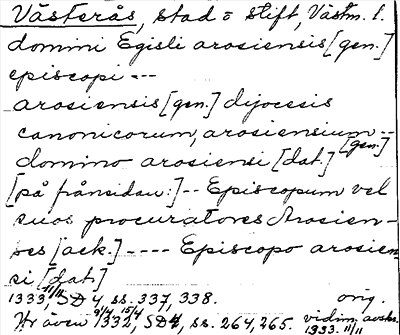 Västerås, stad o stift, Västm. l.
domini Egisli arosiensis [gen.]
episcopi ---
arosiensis [gen.] dijocesis
canonicorum, arosiensium -- [gen.]
domino arosiensi [dat.]
[på frånsidan:] -- Episcopum vel
suos procuratores Arosien-
ses [ack.] ---- Episcopo arosien
si [dat.]
1333 11/11 SD 4, ss. 337, 338. orig.
Hr även 9/4 15/4 1332, SD 4, ss. 264, 265. vidim. avskr. 1333 11/11